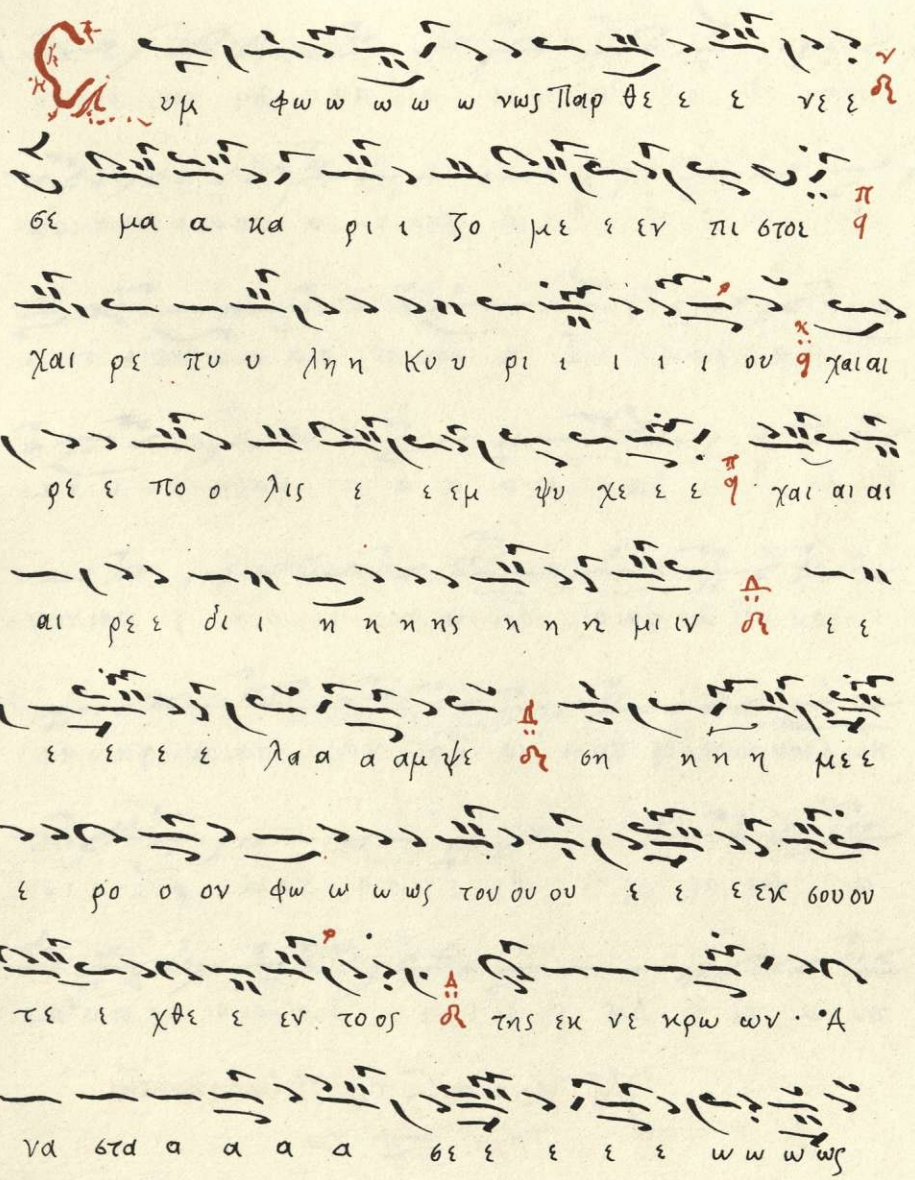 Συμ φω ω ω ω ω νως Παρ θε ε ε νε ε
σε μα α κα ρι ι ζο με ε εν πι στοι
χαι ρε πυ υ λη η Κυ υ ρι ι ι ι ι ου χαι αι
ρε ε πο ο λις ε ε εμ ψυ χε ε ε χαι αι αι
αι ρε ε δι ι η η η ης η η η μι ιν ε ε
ε ε ε ε λα α α αμ ψε ση η η η με ε
ε ρο ο ον φω ω ω ως του ου ου ε ε ε εκ σου ου
τε ε χθε ε εν το ος της εκ νε κρω ων · Α
να στα α α α α σε ε ε ε ε ω ω ω ως